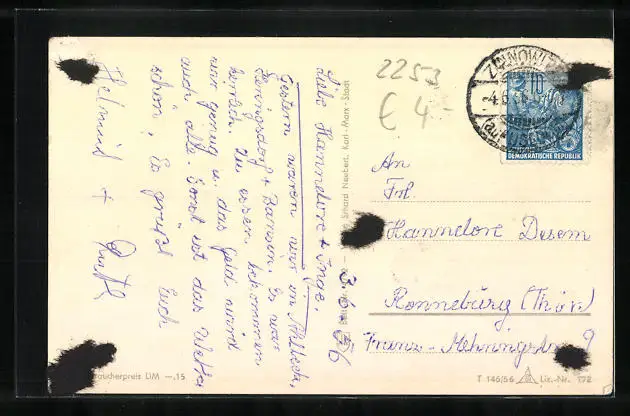 2253
€ 4,-
3.6.56
Liebe Hannelore + Inge,
Gestern waren wir in Ahlbeck,
Heringsdorf + Bansin. Es war
herrlich. Zu essen bekommen
wir genug u. das Geld wird
auch alle. Sonst ist das Wetter
schön. Es grüßt Euch
Helmut + Ruth
Erhard Neubert, Karl-Marx-Stadt
ZINNOWITZ
-4.6.56
10
DEMOKRATISCHE REPUBLIK
An
Frl.
Hannelore Desem
Ronneburg (Thür)
Franz-Mehringstr. 9
raucherpreis DM —.15
T 146/56 Liz.-Nr. 172